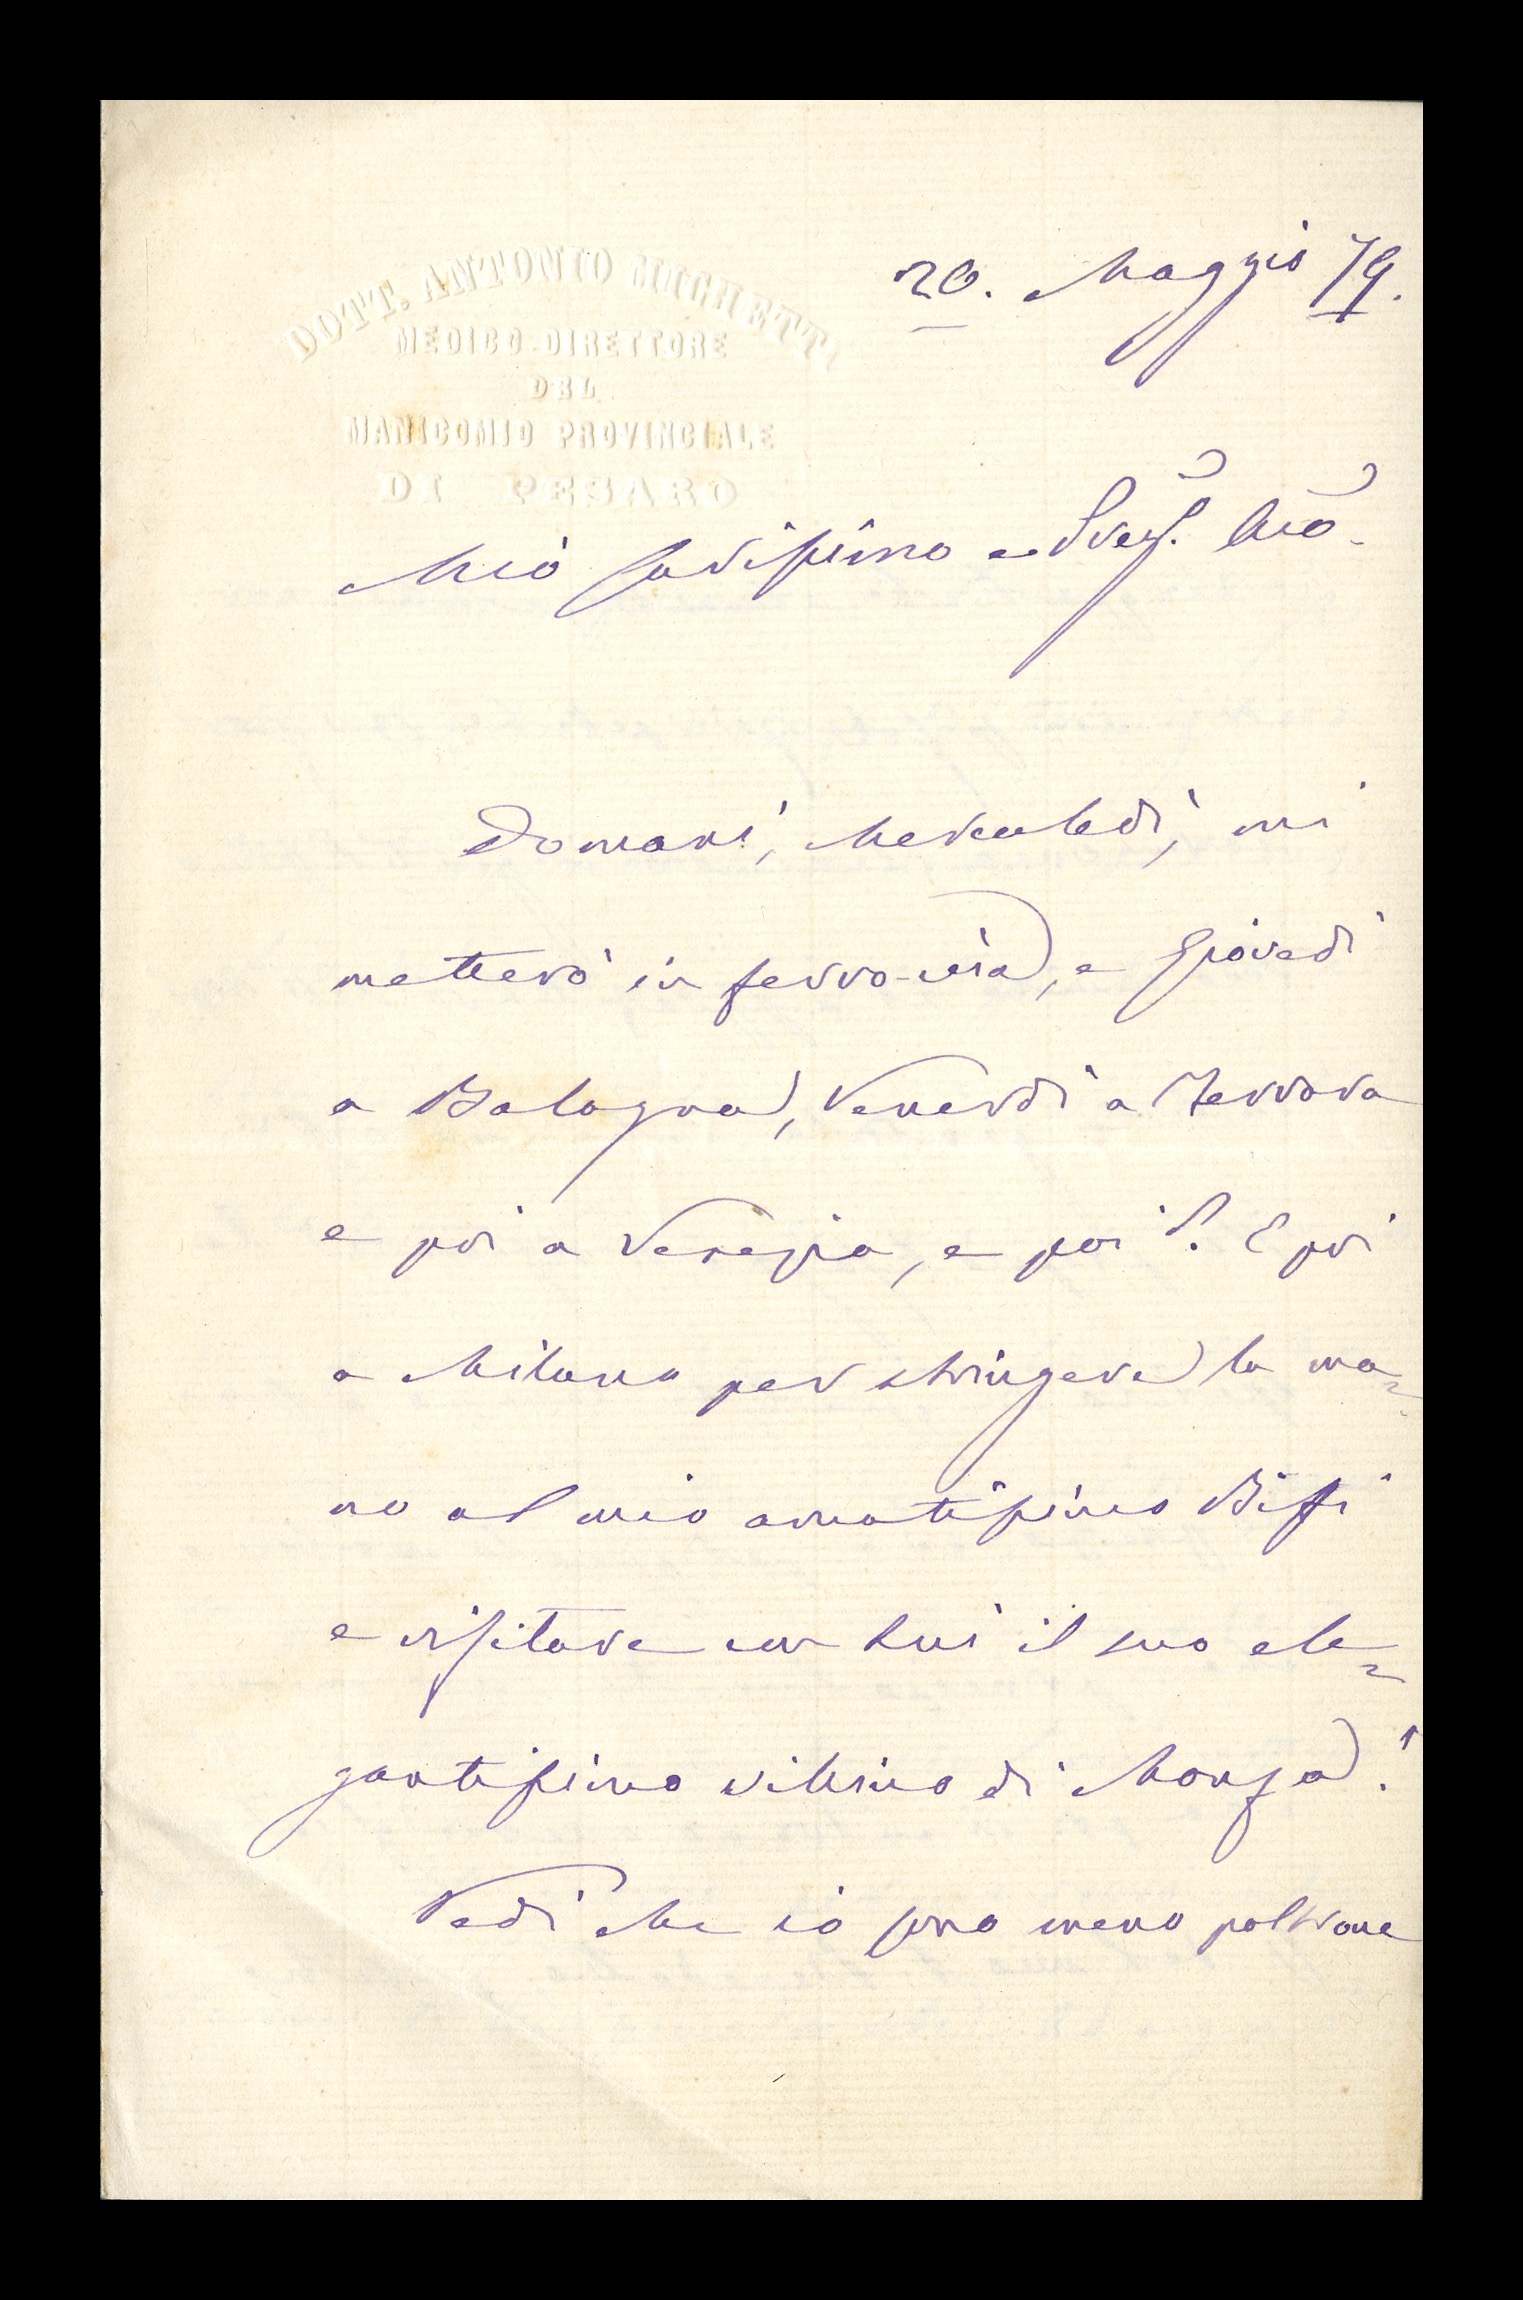 DOTT. ANTONIO MICHETTI
MEDICO-DIRETTORE
DEL
MANICOMIO PROVINCIALE
DI PESARO
20. Maggio 79.
Mio Carissimo e
Domani, Mercoledì, mi
metterò in ferro-via, e Giovedì
a Bologna, Venerdì a Ferrara
e poi a Venezia, e poi? E poi
a Milano per stringere la ma=
no al mio amatissimo Biffi
e visitare con Lui il suo ele=
gantissimo villino di Monza!
Vedi che io sono meno poltrone